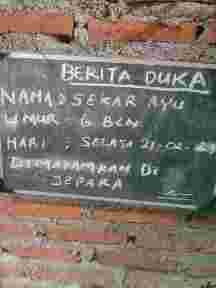 BERITA DUKA
NAMA : SEKAR AYU
UMUR : 6 BLN
HARI : SELASA 21-02-
DIMAKAMKAN DI
JEPARA